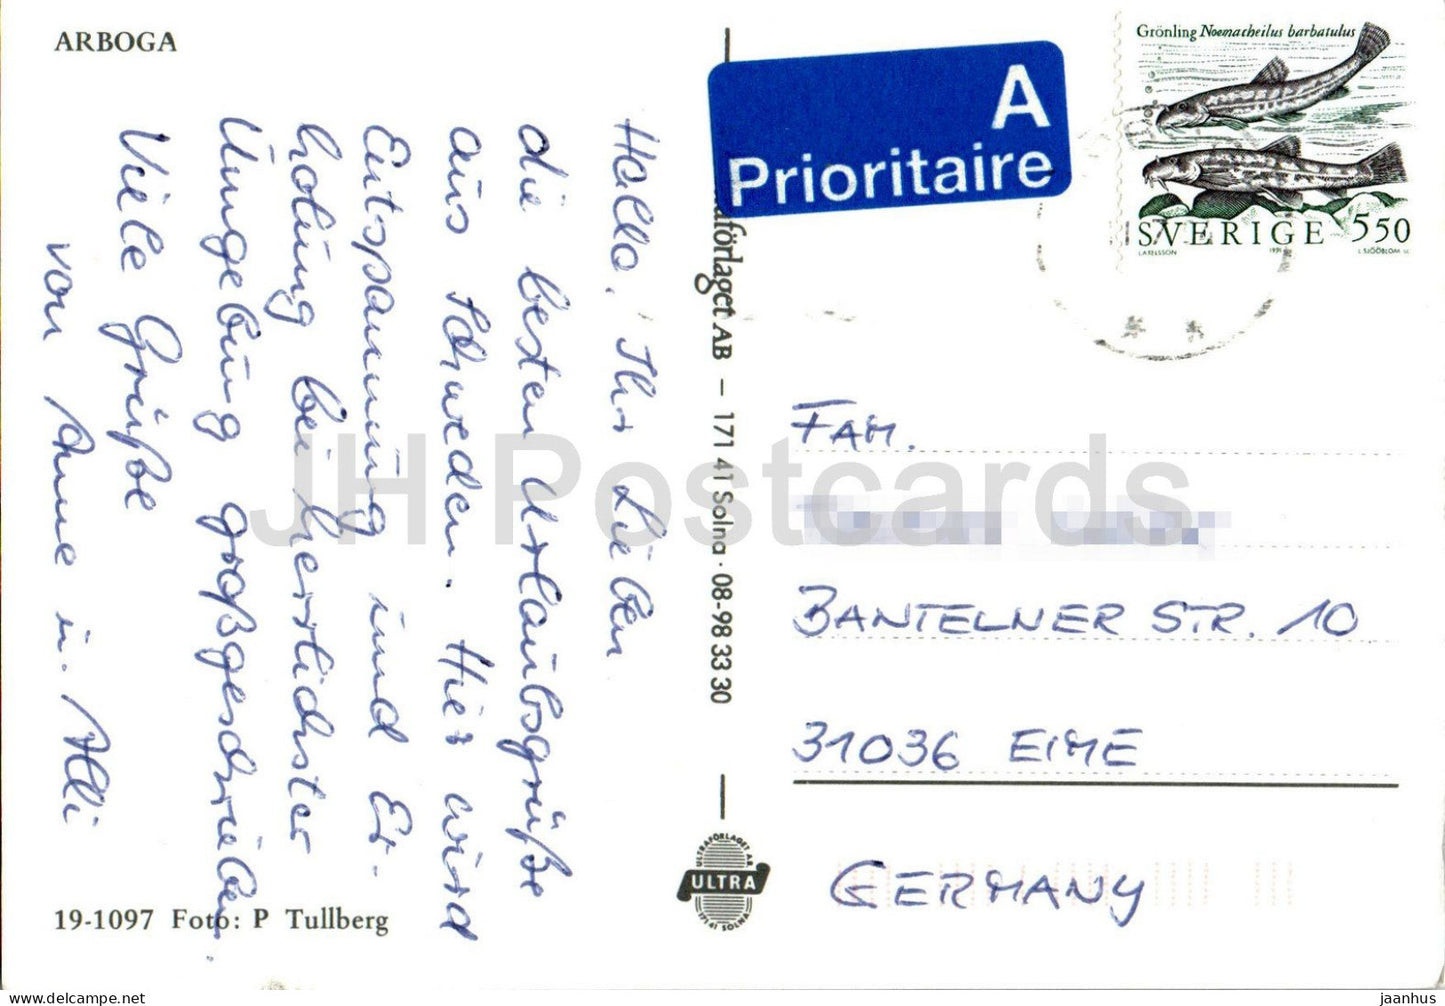 ARBOGA
Hallo, Ihr Lieben
die besten Urlaubsgrüße
aus Schweden. Hier wird
Entspannung und Er-
holung bei herrlichster
Umgebung großgeschrieben.
Viele Grüße
von Anne u. Alli
19-1097 Foto: P Tullberg
aförlaget AB – 171 41 Solna · 08-98 33 30
ULTRAFÖRLAGET AB
ULTRA
171 41 SOLNA
A
Prioritaire
Grönling Noemacheilus barbatulus
SVERIGE 550
L AXELSSON 1991 L SJÖÖBLOM SC
FAM.
BANTELNER STR. 10
31036 EIME
GERMANY
JH Postcards
Delcampe.net
jaanhus